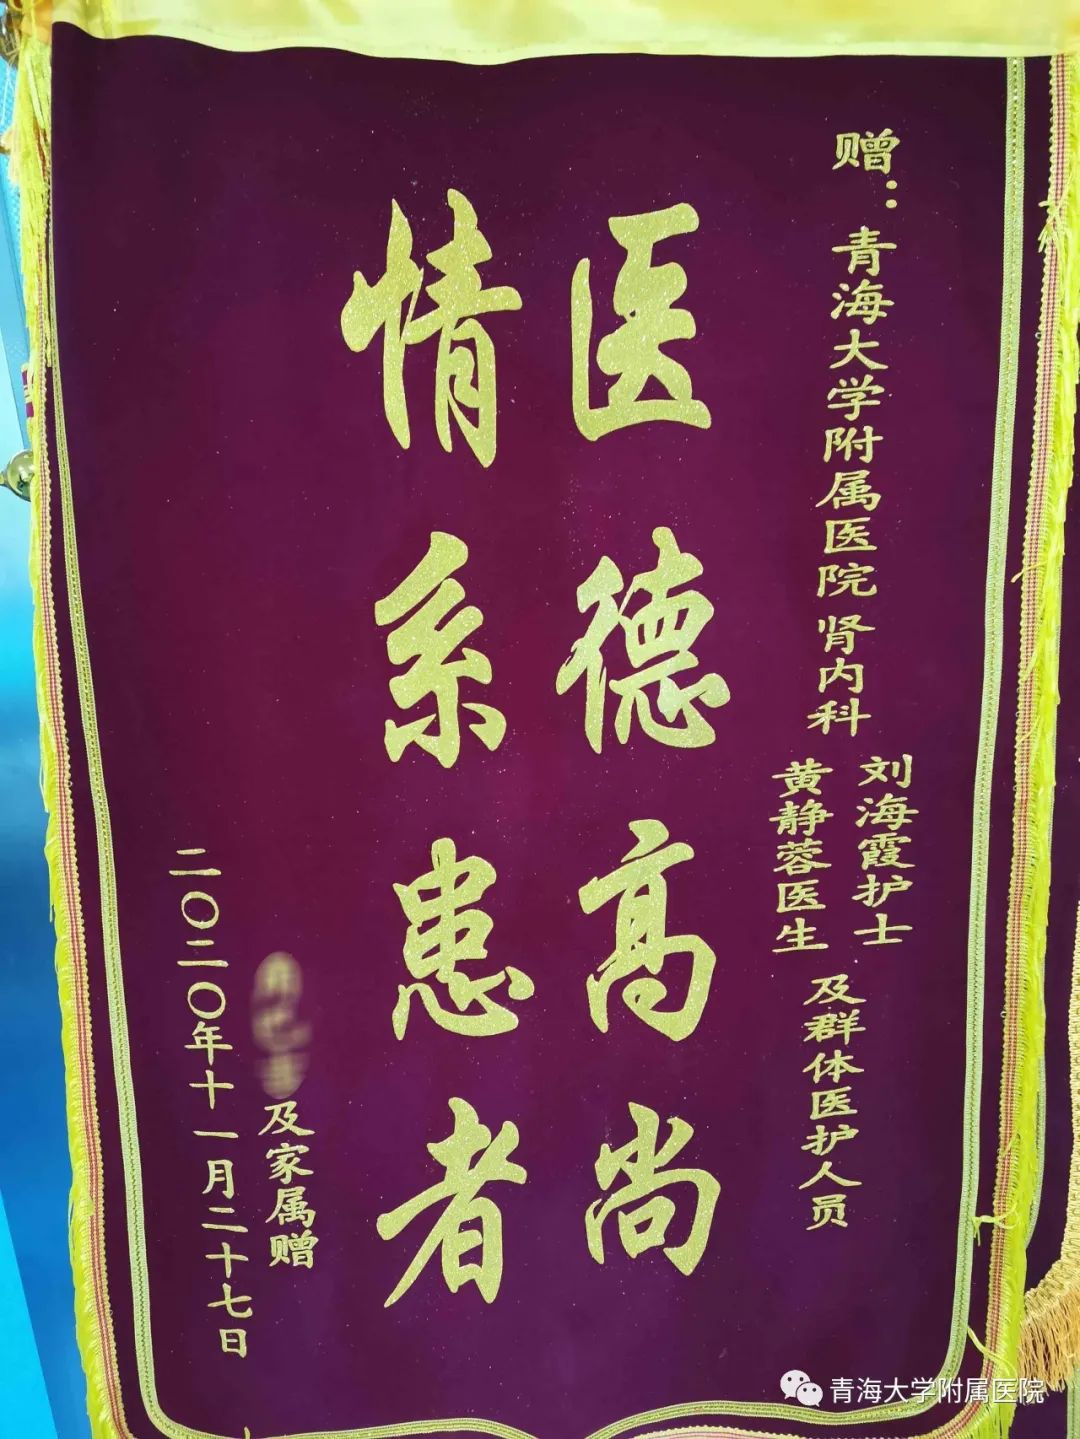 赠：青海大学附属医院 肾内科
刘海霞护士
黄静蓉医生
及群体医护人员
医德高尚
情系患者
及家属赠
二〇二〇年十一月二十七日
青海大学附属医院